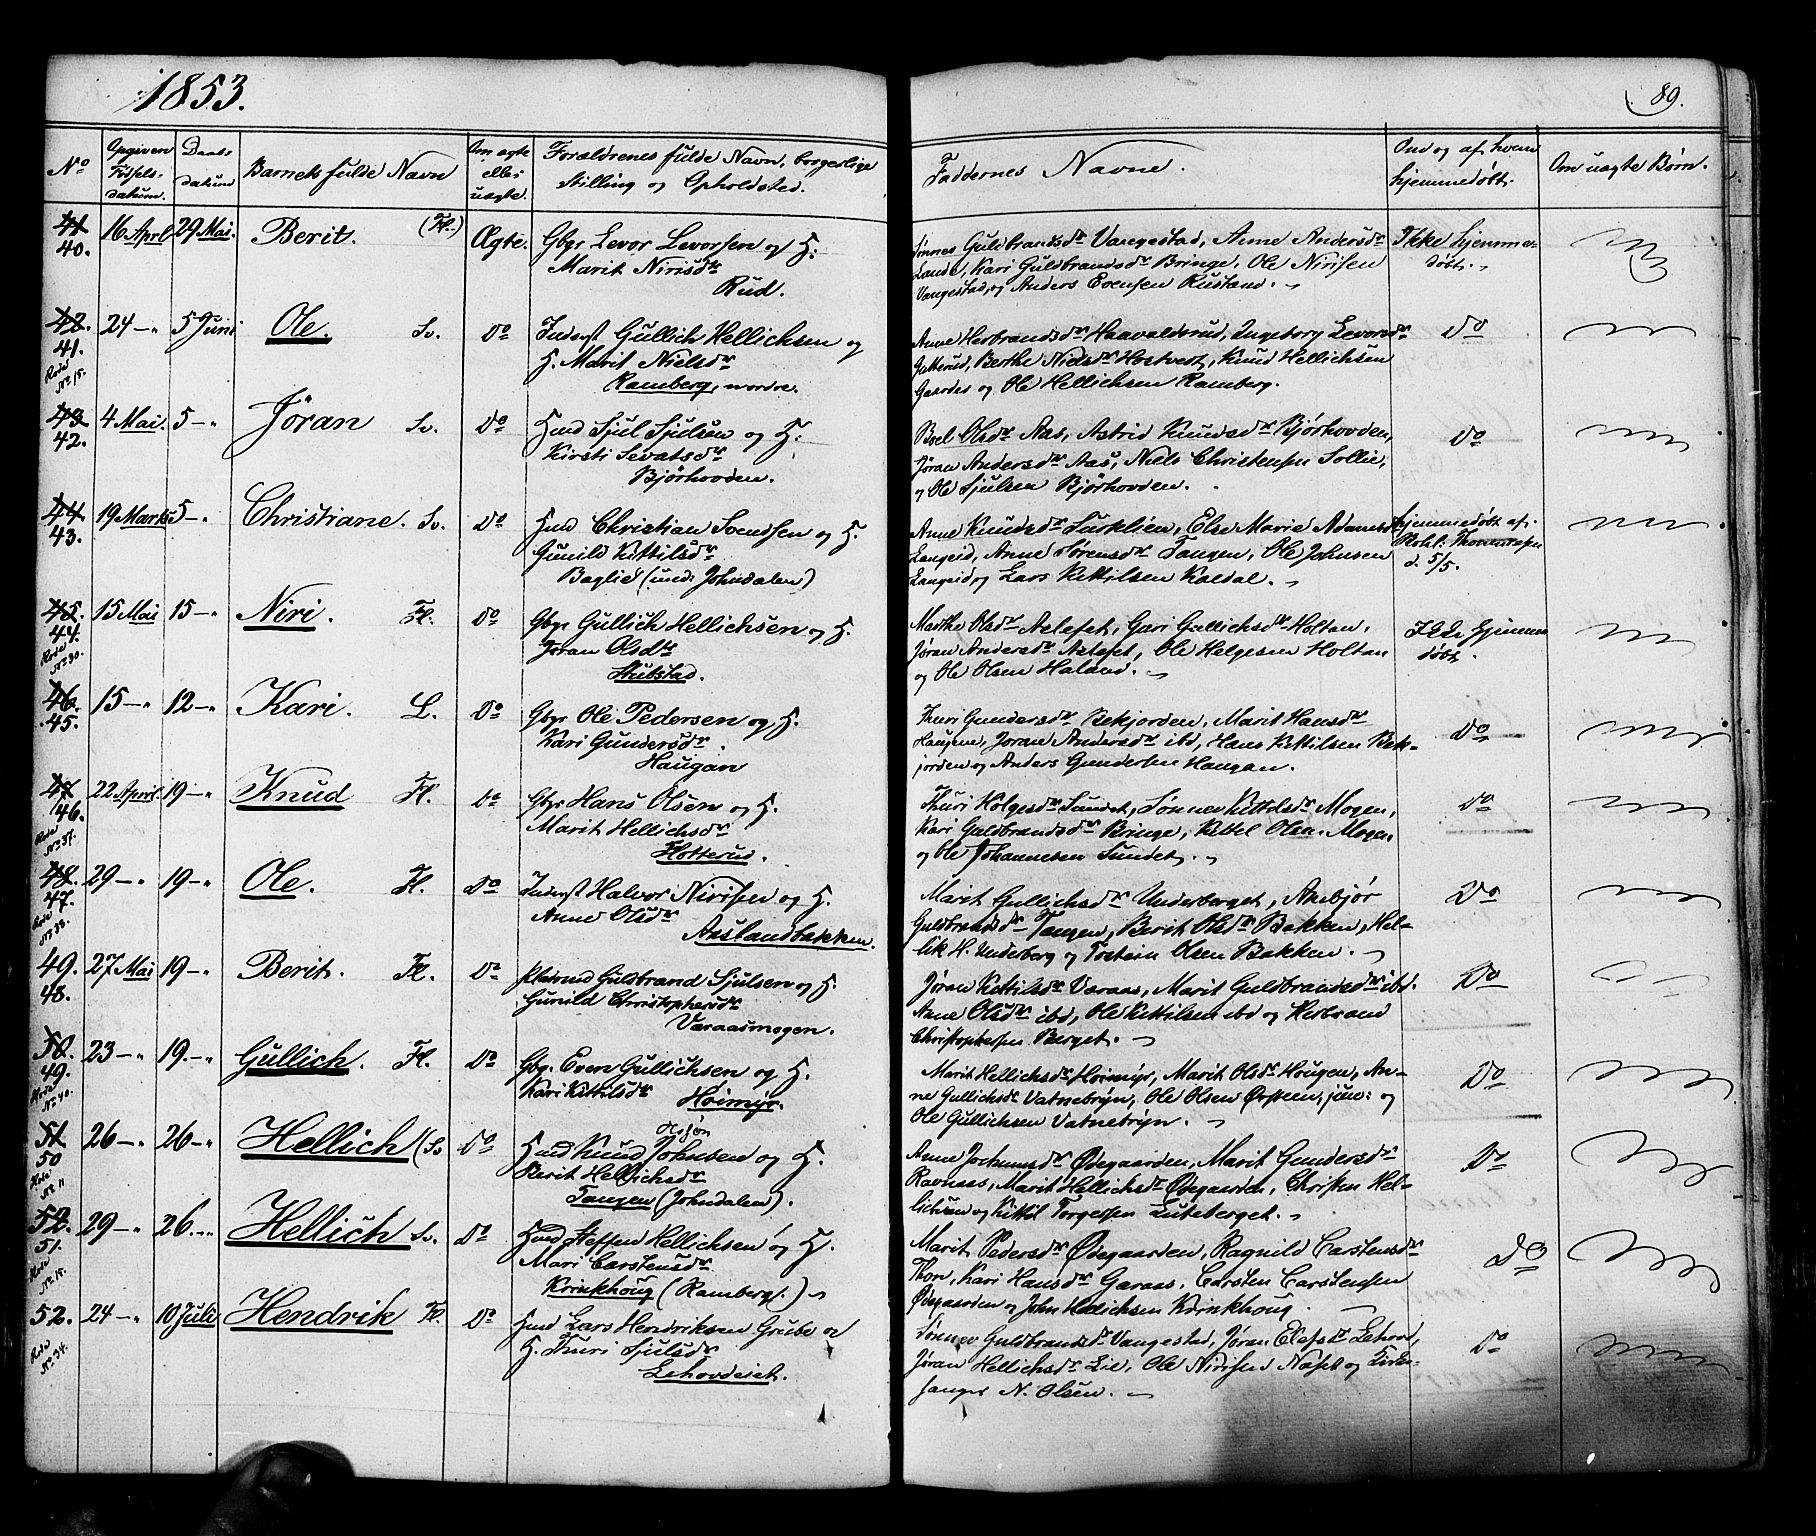 1853.
89.
No
Opgiven Fødsels-datum.
Daabsdatum
Barnets fulde Navn
Om ægte eller uægte.
Forældrenes fulde Navn, borgerlige Stilling og Opholdsted.
Faddernes Navne.
Om og af hvem hjemmedøbt.
Om uægte Børn.
41 40. 16 Aprl 29 Mai. Berit. (Fl.) Ægte. Gbgr Levor Levorsen og H:
Marit Nirisdr
Rud.
Sønnev Guldbrandsdr Vangestad, Anne Andersdr
Lande, Kari Guldbrandsdr Bringe, Ole Nirisen
Vangestad, og Anders Evensen Rustand.
Ikke hjemme-
døbt.
42. 41. 24 –„ 5 Juni Ole. Sv. Do Inderst Gullich Hellichsen og
H. Marit Nielsdr
Ramberg, nordre.
Rode No 15.
Anne Herbrandsdr Haavaldsrud, Ingeborg Levorsdr
Berthe Nielsdr Knud Hellichsen
Gaardes og Ole Hellichsen Ramberg.
Do
43 42. 4 Mai. 5 –„ Jöran Sv. Do Hmd Sjul Sjulsen og H:
Kirsti Sevatsdr
Bjørhovden.
Boel Olsdr Aas, Astrid Knudsdr Bjørhovden,
Jøran Andersdr Aas, Niels Christensen Sollie,
og Ole Sjulsen Bjørhovden.
Do
44 43. 19 Marts 5 –„ Christiane. Sv. Do Hmd Christian Svendsen og H.
Gunild Kittilsdr
Baglie (und: Johndalen)
Anne Knudsdr Else Marie Adamsd
Langeid, Anne Sørensdr Tangen, Ole Johnsen
Langeid og Lars Kittilsen Kaldal.
hjemmedøbt af
Thommesen
d. 5/5.
45. 44. 15 Mai 15 –„ Niri. Fl. Do Gbgr Gullich Hellichsen og H.
Jöran Olsdr
Stubstad.
Rode No 30.
Marthe Olsdr Aslefet, Gari Gullichsdr Holtan,
Jøran Andersdr Aslefet, Ole Helgesen Holtan
og Ole Olsen Haland.
Ikke hjemme
døbt.
46. 45. 15 –„ 12 –„ Kari. L. Do Gbgr Ole Pedersen og H.
Kari Gundersdr
Haugan
Thuri Gundersdr Bekjorden, Marit Hansdr
Haugene, Joran Andersdr ibd, Hans Kittilsen Bek-
jorden og Anders Gundersen Haugan.
Do
47 46. 22 April. 19 –„ Knud Fl. Do Gbgr Hans Olsen og H
Marit Hellichsdr
Flotterud.
Rode No 37.
Thuri Holgesdr Sundet, Sønnev Kittelsdr Mogen,
Kari Guldbrandsdr Bringe, Kittel Olsen Mogen,
og Ole Johannesen Sundet.
Do
48. 47. 29 –„ 19 –„ Ole. Fl. Do Inderst Halvor Nirisen og H.
Anne Olsdr
Aaslandbakken.
Rode No 38.
Marit Gullichsdr Underberget, Asbjør
Guldbrandsdr Tangen, Berit Olsdr Bakken, Hel-
lik H. Underberg og Tostein Olsen Bakken.
Do
49. 48. 27 Mai 19 –„ Berit. Fl. Do Guldbrand Sjulsen og H.
Gunild Christophersdr
Varaasmogen.
Jøran Kittilsdr Varaas, Marit Guldbrandsdr ibd.
Anne Olsdr ibd, Ole Kittilsen ibd og Herbrand
Christophersen Berget.
Do
50. 49. 23 –„ 19. –„ Gullich. Fl. Do Gbgr. Even Gullichsen og H.
Kari Kittilsdr Høimyr.
Rode No 40.
Marit Hellichsdr Høimyr, Marit Olsdr Hougen, An-
ne Gullichsdr Vatnebryn, Ole Olsen jun: og
Ole Gullichsen Vatnebryn.
Do
51 50 26 –„ 26 –„ Hellich (Sv Do Hmd Knud Johnsen og H.
Berit Hellichsdr
Tangen (Johndalen).
Rode No 11
Anne Jochumsdr Ødegaarden, Marit Gundersdr
Ravnaas, Marit Hellichsdr Ødegaarden, Christen Hel-
lichsen og Kittil Torgersen Luteberget.
Do
52. 51. 29 –„ 26. –„ Hellich Sv. Do Hmd Steffen Hellichsen og H.
Mari Carstensdr
Krinkhoug (Ramberg.)
Rode No 15.
Marit Pedersdr Ødegaarden, Ragnild Carstensdr
Thon, Kari Hansdr Garaas, Carsten Carstensen
Ødegaarden og John Hellichsen Krinkhoug.
Do
52. 24 –„ 10 Juli Hendrik Fl. Do Hmd Lars Hendriksen Grube og
H. Thuri Sjulsdr
Lehovdeiet.
Rode No 34.
Sønnev Guldbrandsdr Vangestad, Jøran Elefsdr Lehovd,
Jøran Hellichsdr Lie, Ole Nirisen Næset og Kirke-
sanger N. Olsen.
Do